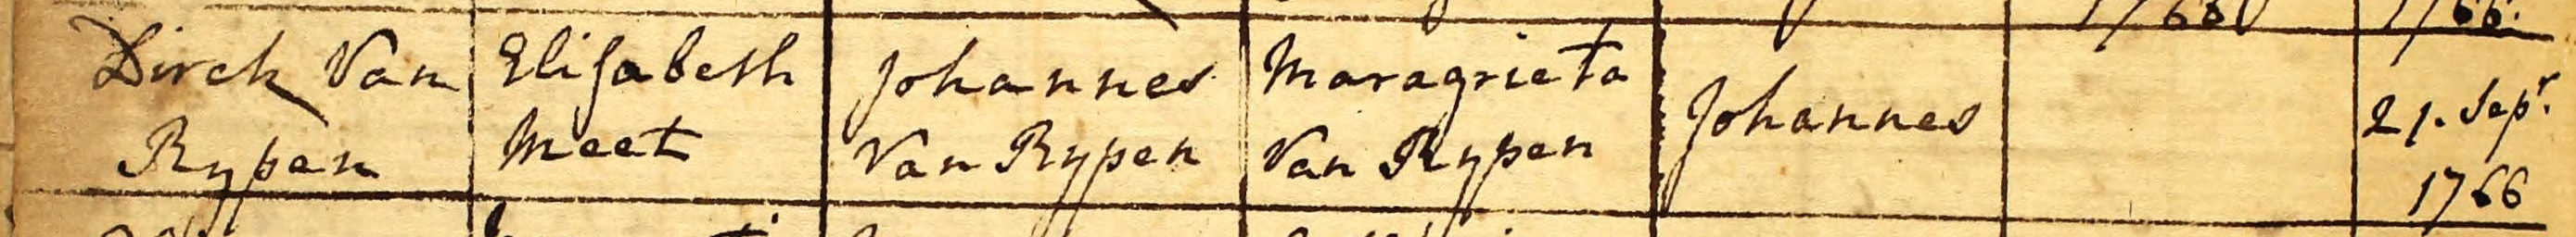 1766 1766.
Dirck Van Elisabeth Johannes Maragrieta
Rypen Meet Van Rypen Van Rypen Johannes 21. Sepr.
1766